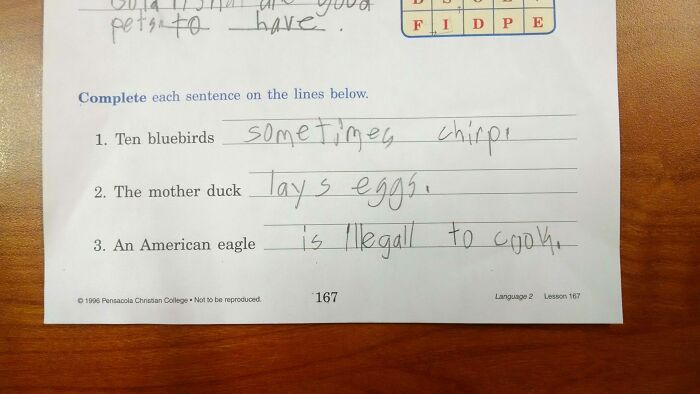 good
pets to have.
F I D P E
Complete each sentence on the lines below.
1. Ten bluebirds sometimes chirp.
2. The mother duck lays eggs.
3. An American eagle is Illegall to cook.
© 1996 Pensacola Christian College • Not to be reproduced.
167
Language 2 Lesson 167